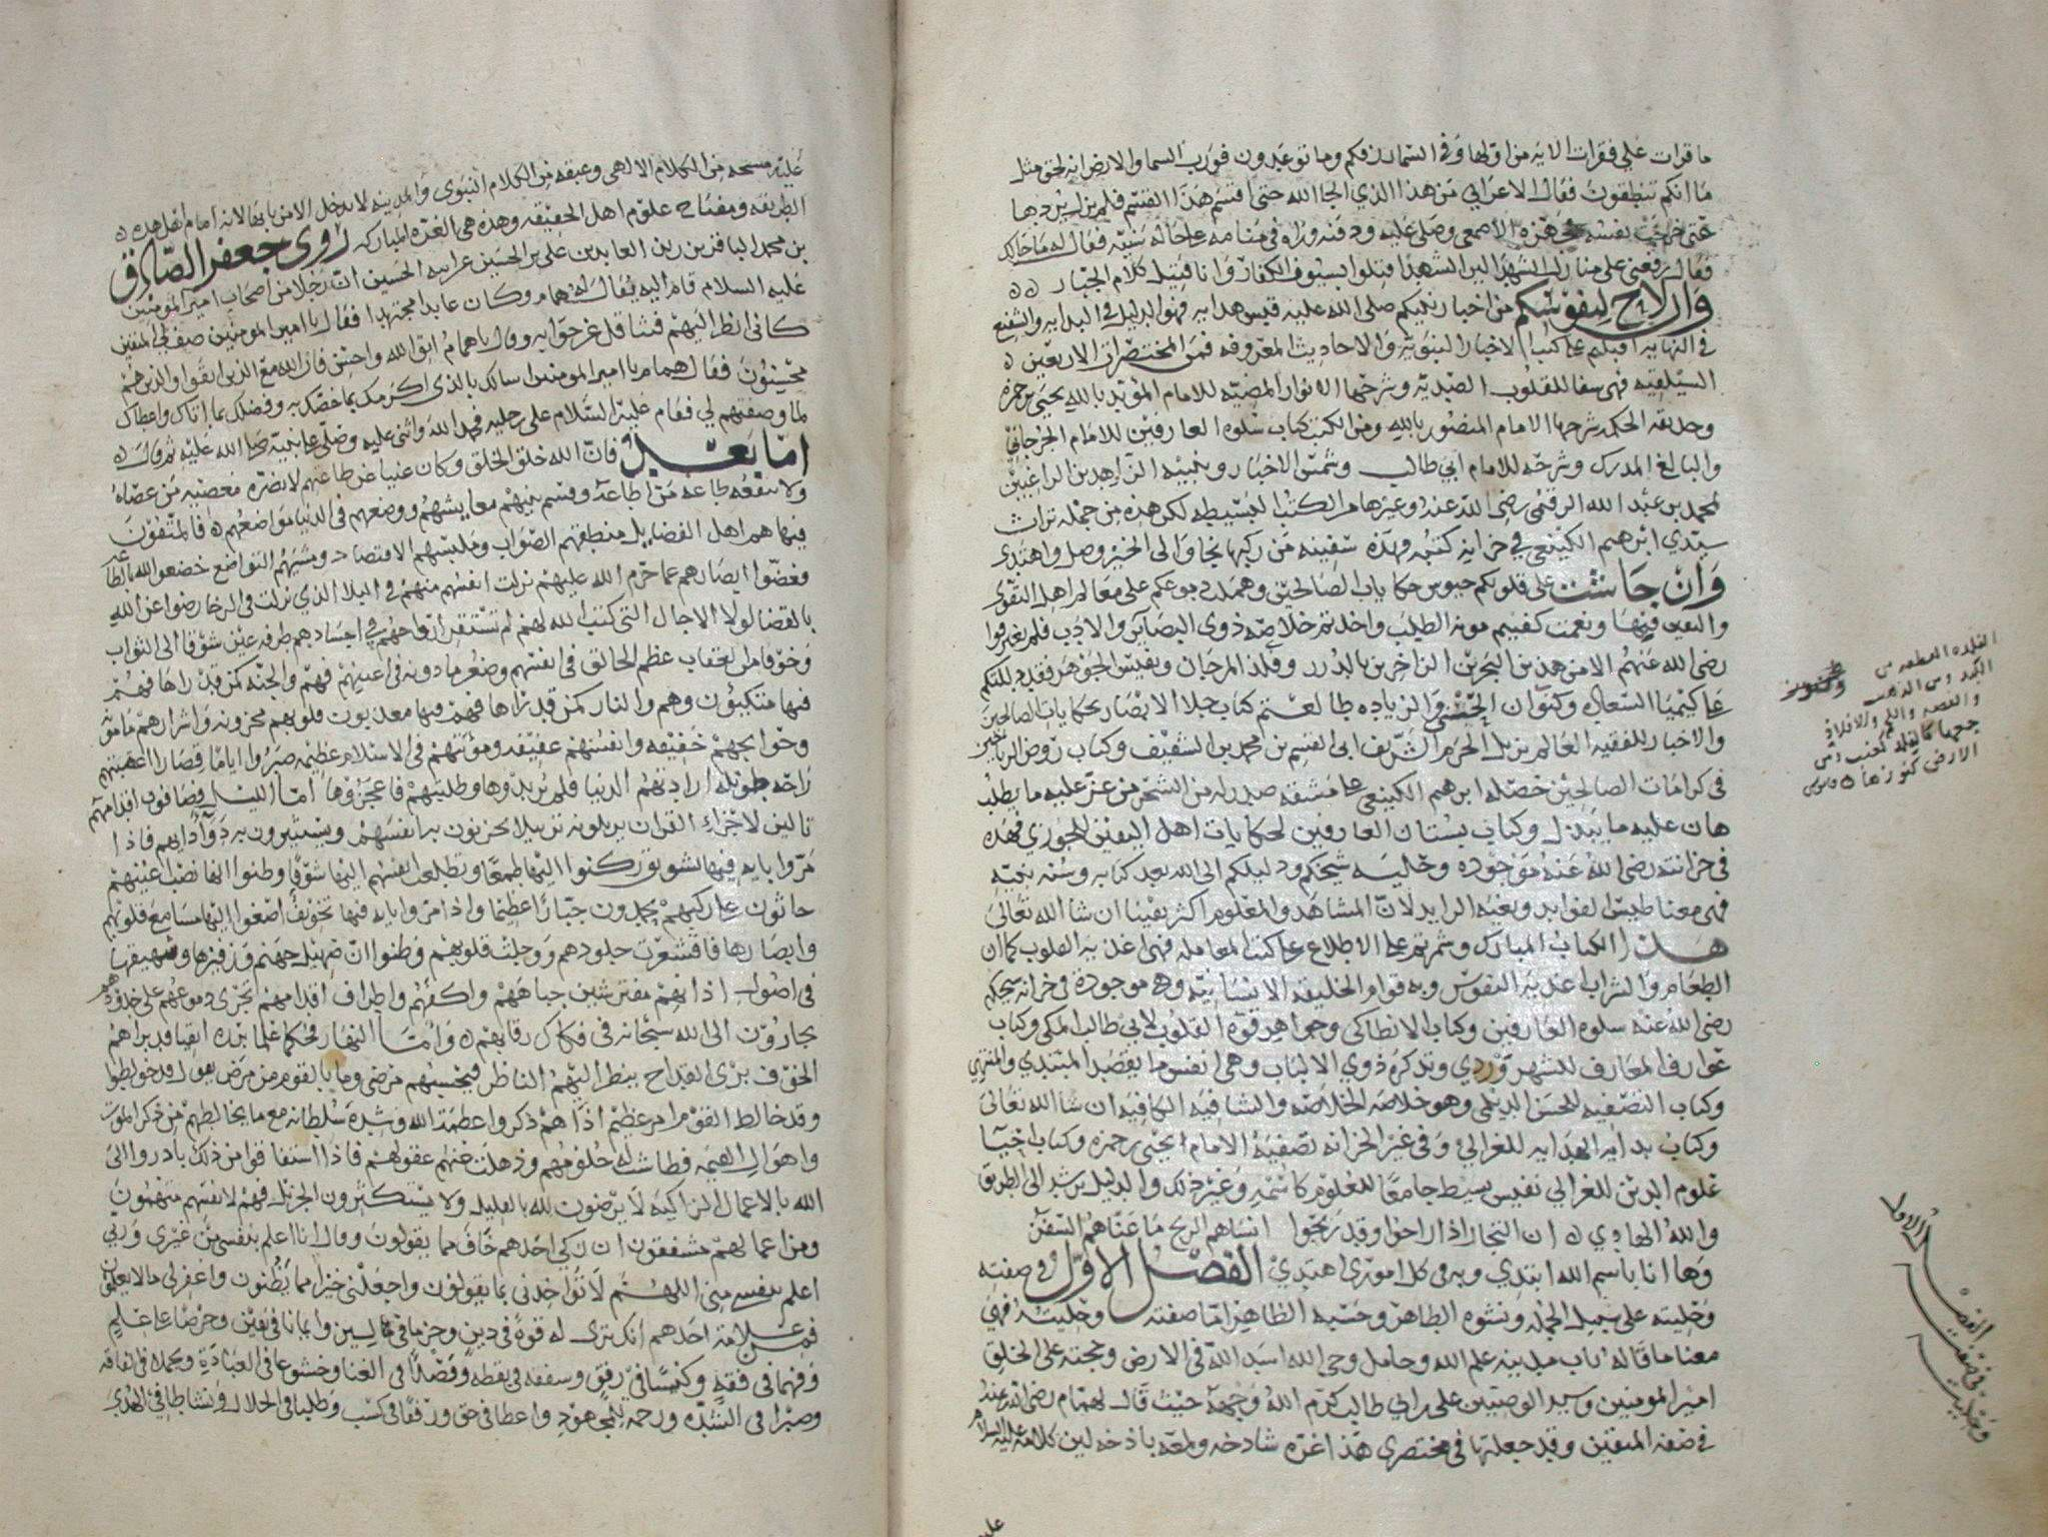 ما قرات علي فقرات الايه من اولها وفي السما رزقكم وما توعدون فورب السما والارض انه لحق مثل
ما انكم تنطقون فقال الاعرابي من هذا الذي الجا الله حتى اقسم هذا القسم فلم يزل يرددها
حتى خرجت نفسه الاصمعي وصلى عليه ودفنه وراه في منامه على حاله سنيه فقال له ما حالك
فقال رفعني على منازل الشهدا لان الشهدا قتلوا بسيوف الكفار وانا قتيل كلام الجبار
وارلاح لنفوسكم من اخبار نبيكم صلى الله عليه قبس هدايه فهو الدليل في البدايه والشفيع
في النهايه اقبلتم على كتب الاخبار النبويه والاحاديث المعروفه فمن المختصرات الاربعين
السيلقيه فهي شفا للقلوب الصديه وشرحها الانوار المضيه للامام المويد بالله يحيى بن حمزه
وحديقه الحكمه شرحها الامام المنصور بالله ومن الكتب كتاب سلوه العارفين للامام الجرجاني
والبالغ المدرك وشرحه للامام ابي طالب وشمس الاخبار وتنبيه الراغبين
لمحمد بن عبد الله الرقيمي رضي الله عنه وغيرها من الكتب البسيطه لكن هذه من جمله تراث
سيدي ابرهيم الكينعي في خزانه كتبه فهذه سفينه من ركبها نجا والى الخير وصل واهتدى
وان جاشت على قلوبكم جيوش حكايات الصالحين وهملت دموعكم على معالم اهل التقوى
واليقين فيها ونعمت كفيتم مونه الطلب واخذتم خلاصه ذوي البصاير والادب فلم يغيروا
رضي الله عنهم الا من هذين البحرين الزاخرين بالدرر وفلذ المرجان ونفيس الجوهر فقد دللتكم
على كيميا السعاده وعنوان الحسنى والزياده طالعتم كتاب جلا الابصار بحكايات الصالحين
والاخبار للفقيه العالم نزيل الحرم الشريف ابي القسم بن محمد بن الشقيف وكتاب روض الرياحين
في كرامات الصالحين حصله ابرهيم الكينعي على مشقه صدرت له من الشحر من عز عليه ما يطلب
هان عليه ما يبذل وكتاب بستان العارفين لحكايات اهل اليقين للجوزي فهذه
في خزانته رضي الله عنه موجوده وحليه شيخكم ودليلكم الى الله بعد كتابه وسنه نبيه
فهي معناطيس الفوايد وبغيه الرايد لان المشاهد والمعلوم اكثر يقينا ان شا الله تعالى
هذا الكتاب المبارك وثمرته على الاطلاع على كتب المعامله فهي اغذيه القلوب كما ان
الطعام والشراب اغذيه النفوس وبه قوام الخليقه الانسانيه وهي موجودة في خزانه شيخكم
رضي الله عنه سلوه العارفين وكتاب الانطاكي وجواهر قوه القلوب لابي طالب المكي وكتاب
عوارف المعارف للشهروردي وتذكره ذوي الالباب وهي انفس ما يقصد المبتدي والمنتهي
وكتاب التصفيه للحسن الديلمي وهو خلاصه الخلاصه والشافيه الكافيه ان شا الله تعالى
وكتاب بدايه الهدايه للغزالي وفي غير الخزانه تصفيه الامام يحيى بن حمزه وكتاب احيا
علوم الدين للغزالي نفيس بسيط جامعا للعلوم كاسمه وغير ذلك والدليل يرشد الى الطريق
والله الهادي ان التجار اذا راحوا وقد ربحوا انساهم الربح ما عناهم السفر
وها انا باسم الله ابتدي وبه في كل امر اهتدي الفصل الاول في صفته
وحليته على سبيل الجمله ونشوه الطاهر وحسبه الظاهر اما صفته وحليته فهي
معنا ما قاله باب مدينه علم الله وحامل وحي الله اسد الله في الارض وحجته على الخلق
امير المومنين وسيد الوصيين علي بن ابي طالب كرم الله وجهه حيث قال لهمام رضي الله عنه
في صفه المتقين وقد جعلتها في مختصري هذا غره شادخه ولمعه باذخه لان كلامه عليه السلام
القلذه القطعه من
الكبد ومن الذهب
والفضه واللحم والافلاذ
جمعها كالفلذ كعنب ومن
الارض كنوزها
الفصل الاول
في صفته
وحليته
عليه مسحه من الكلام الالهي وعبقه من الكلام النبوي والمدينه لا يدخل الا من بابها لانه امام اهل هذه
الطريقه ومفتاح علوم اهل الحقيقه وهذه هي الغره المباركه روى جعفر الصادق
بن محمد الباقر بن زين العابدين علي بن الحسين عن ابيه الحسين ان رجلا من اصحاب امير المومنين
عليه السلام قام اليه يقال له همام وكان عابدا مجتهدا فقال يا امير المومنين صف لي المتقين
كاني انظر اليهم فتثاقل عن جوابه وقال يا همام اتق الله واحسن فان الله مع الذين اتقوا والذين هم
محسنون فقال همام يا امير المومنين اسالك بالذي اكرمك بما خصك به وفضلك بما اتاك واعطاك
لما وصفتهم لي فقام عليه السلام على رجليه فحمد الله واثنى عليه وصلى على نبيه صلى الله عليه ثم قال
اما بعد فان الله خلق الخلق وكان غنيا عن طاعتهم لا تضره معصيه من عصاه
ولا تنفعه طاعه من اطاعه وقسم بينهم معايشهم ووضعهم في الدنيا مواضعهم فالمتقون
فيها هم اهل الفضايل منطقهم الصواب وملبسهم الاقتصاد ومشيهم التواضع خضعوا لله بالطاعه
فغضوا ابصارهم عما حرم الله عليهم نزلت انفسهم منهم في البلا الذي نزلت في الرخا رضوا عن الله
بالقضا لولا الاجال التي كتب الله لهم لم تستقر ارواحهم في اجسادهم طرفه عين شوقا الى الثواب
وخوفا من العقاب عظم الخالق في انفسهم وصغر ما دونه في اعينهم فهم والجنه كمن قد راها فهم
فيها متكيون وهم والنار كمن قد راها فهم فيها معذبون قلوبهم محزونه وشرارهم مامونه
وحوايجهم خفيفه وانفسهم عفيفه ومونتهم في الاسلام عظيمه صبروا اياما قصارا اعقبتهم
راحه طويله ارادتهم الدنيا فلم يريدوها وطلبتهم فاعجزوها اما الليل فصافون اقدامهم
تالين لاجزاء القران يرتلونه ترتيلا يحزنون به انفسهم ويستثيرون به دوا دايهم فاذا
مروا بايه فيها تشويق ركنوا اليها طمعا وتطلعت انفسهم اليها شوقا وظنوا انها نصب اعينهم
حاثون على ركبهم يمجدون جبارا عظيما واذا مروا بايه فيها تخويف اصغوا اليها مسامع قلوبهم
وابصارها فاقشعرت جلودهم ووجلت قلوبهم وظنوا ان صهيل جهنم وزفيرها وشهيقها
في اصول اذانهم مفترشين جباههم واكفهم واطراف اقدامهم تجري دموعهم على خدودهم
يجارون الى الله سبحانه في فكاك رقابهم واما النهار فحكما علما برره اتقيا قد براهم
الخوف بري القداح ينظر اليهم الناظر فيحسبهم مرضى وما بالقوم من مرض يقول قد خولطوا
وقد خالط القوم امر عظيم اذا هم ذكروا عظمة الله وشدة سلطانه مع ما يخالطهم من ذكر الموت
واهوال القيمه فطاشت له حلومهم وذهلت عنهم عقولهم فاذا استفاقوا من ذلك بادروا الى
الله بالاعمال الزاكيه لا يرضون لله بالقليل ولا يستكثرون الجزيل فهم لانفسهم متهمون
ومن اعمالهم مشفقون ان زكي احدهم خاف مما يقولون وقال انا اعلم بنفسي من غيري وربي
اعلم بنفسي مني اللهم لا تواخذني بما يقولون واجعلني خيرا مما يظنون واغفر لي ما لا يعلمون
فمن علامة احدهم انك ترى له قوة في دين وحزما في لين وايمانا في يقين وحرصا على علم
وفهما في فقه وكيسا في رفق وشفقه في نفقه وقصدا في الغنا وخشوعا في العبادة وتجملا في الفاقه
وصبرا في الشده ورحمه للمجهود واعطا في حق ورفقا في كسب وطلبا في الحلال ونشاطا في الهدى